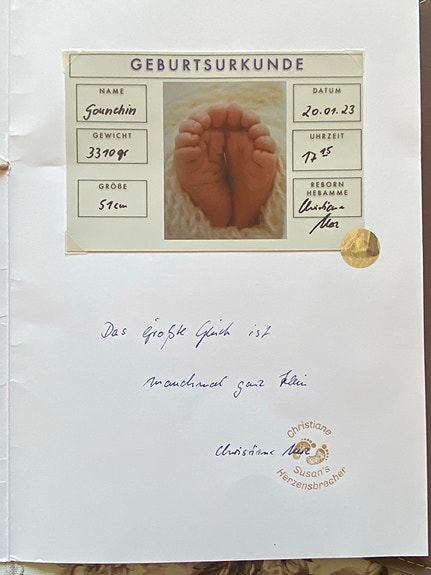 GEBURTSURKUNDE
NAME
Gounchin
GEWICHT
3310 gr
GRÖßE
51cm
DATUM
20.01.23
UHRZEIT
17 15
REBORN
HEBAMME
Christiane
Das Größte Glück ist
manchmal ganz klein
Christiane
Christiane
Susan's
Herzensbrecher